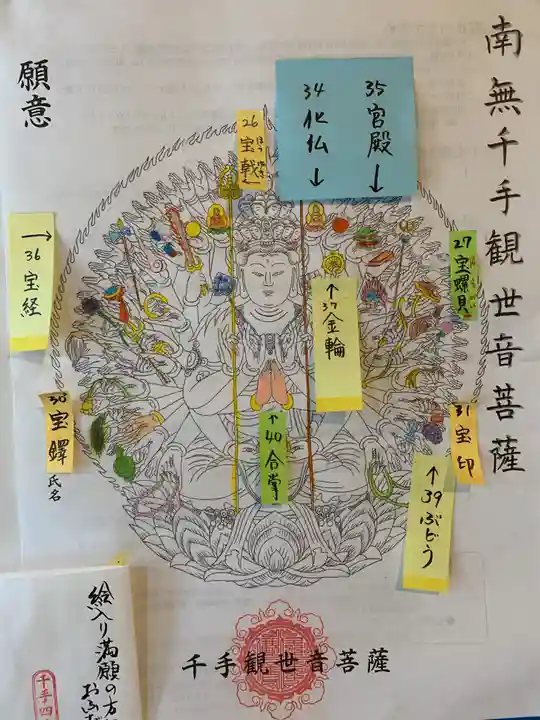 南無千手観世音菩薩
願意
35 宮殿 ↓
34 化仏 ↓
26 宝戟
27 宝螺貝
→ 36 宝経
↑ 37 金輪
30 宝鐸
31 宝印
↑ 40 合掌
↑ 39 ぶどう
氏名
千手観世音菩薩
絵入り満願の方